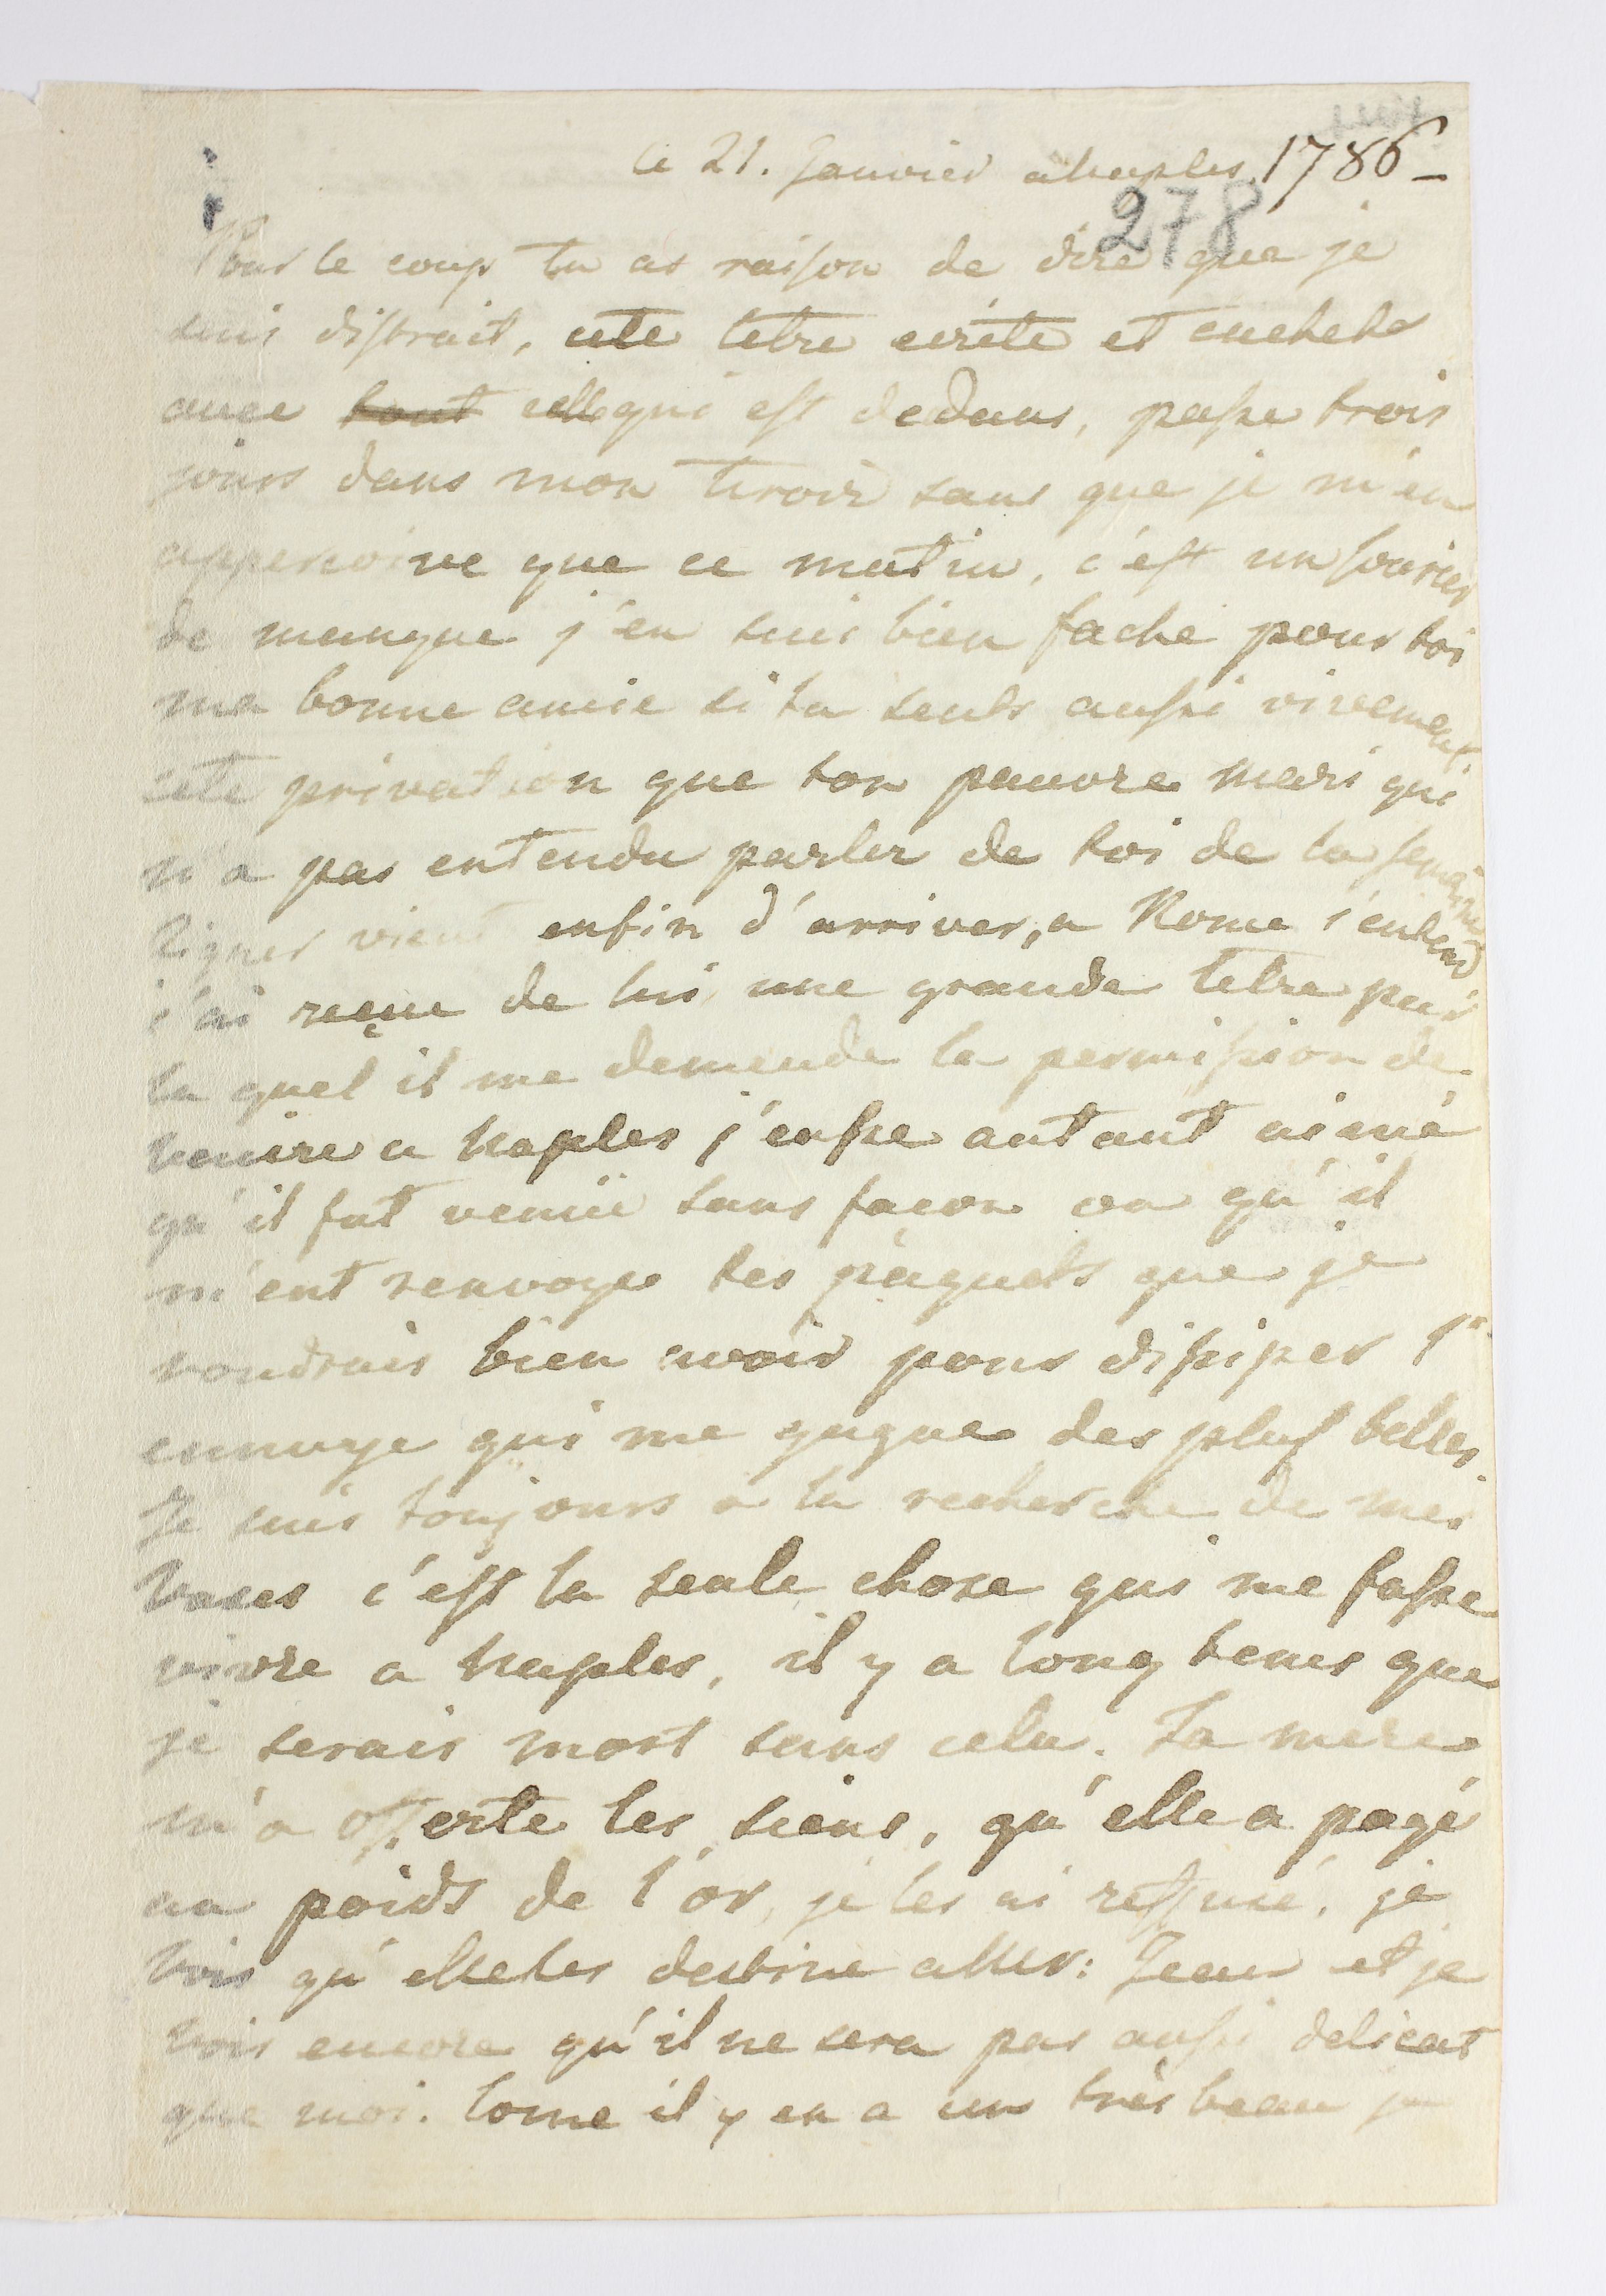 Ce 21. Janvier a Naples 1786 -
278
Pour le coup tu as raison de dire que je
suis distrait, cete letre ecrite et cachetée
avec tout celle qui est dedans, passe trois
jours dans mon tiroir sans que je m'en
apperçoive que ce matin, c'est un courier
de manque j'en suis bien fache pour toi
ma bonne amie si tu sents aussi vivement
cete privation que ton pauvre mari qui
n'a pas entendu parler de toi de la semaine
vient enfin d'arriver, a Rome s'entend
j'ai reçue de lui, une grande letre par
la quel il me demende la permission de
venire a Naples j'eusse autant aimé
qu'il fut venüe sans façon ou qu'il
m'eut renvoye tes paquets que je
voudrais bien avoir pour dissiper l'
ennuye qui me gagne des plus belles.
Je suis toujours a la recherche de mes
Vases c'est la seule chose qui me fasse
vivre a Naples, il y a long tems que
je serais mort sans cela. Ta mere
m'a offerte les siens, qu'elle a payé
au poids de l'or, je les ai reffusé, je
vois qu'elle les destine a Mer: Jean et je
vois encore qu'il ne sera pas aussi delicat
que moi. Come il y en a un très beau je